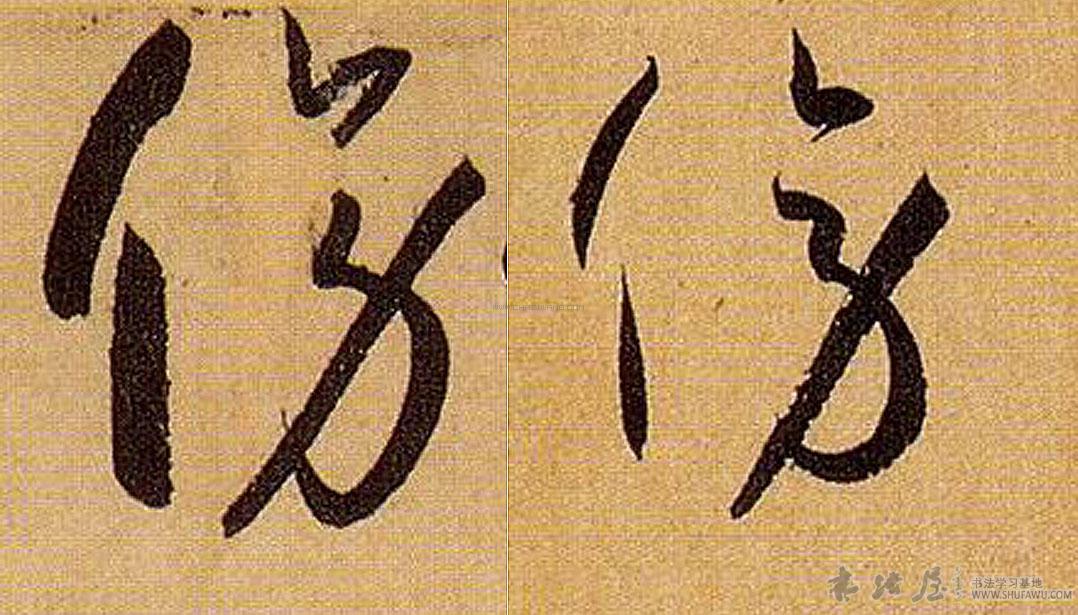 傍 傍
书法屋 书法学习基地
WWW.SHUFAWU.COM